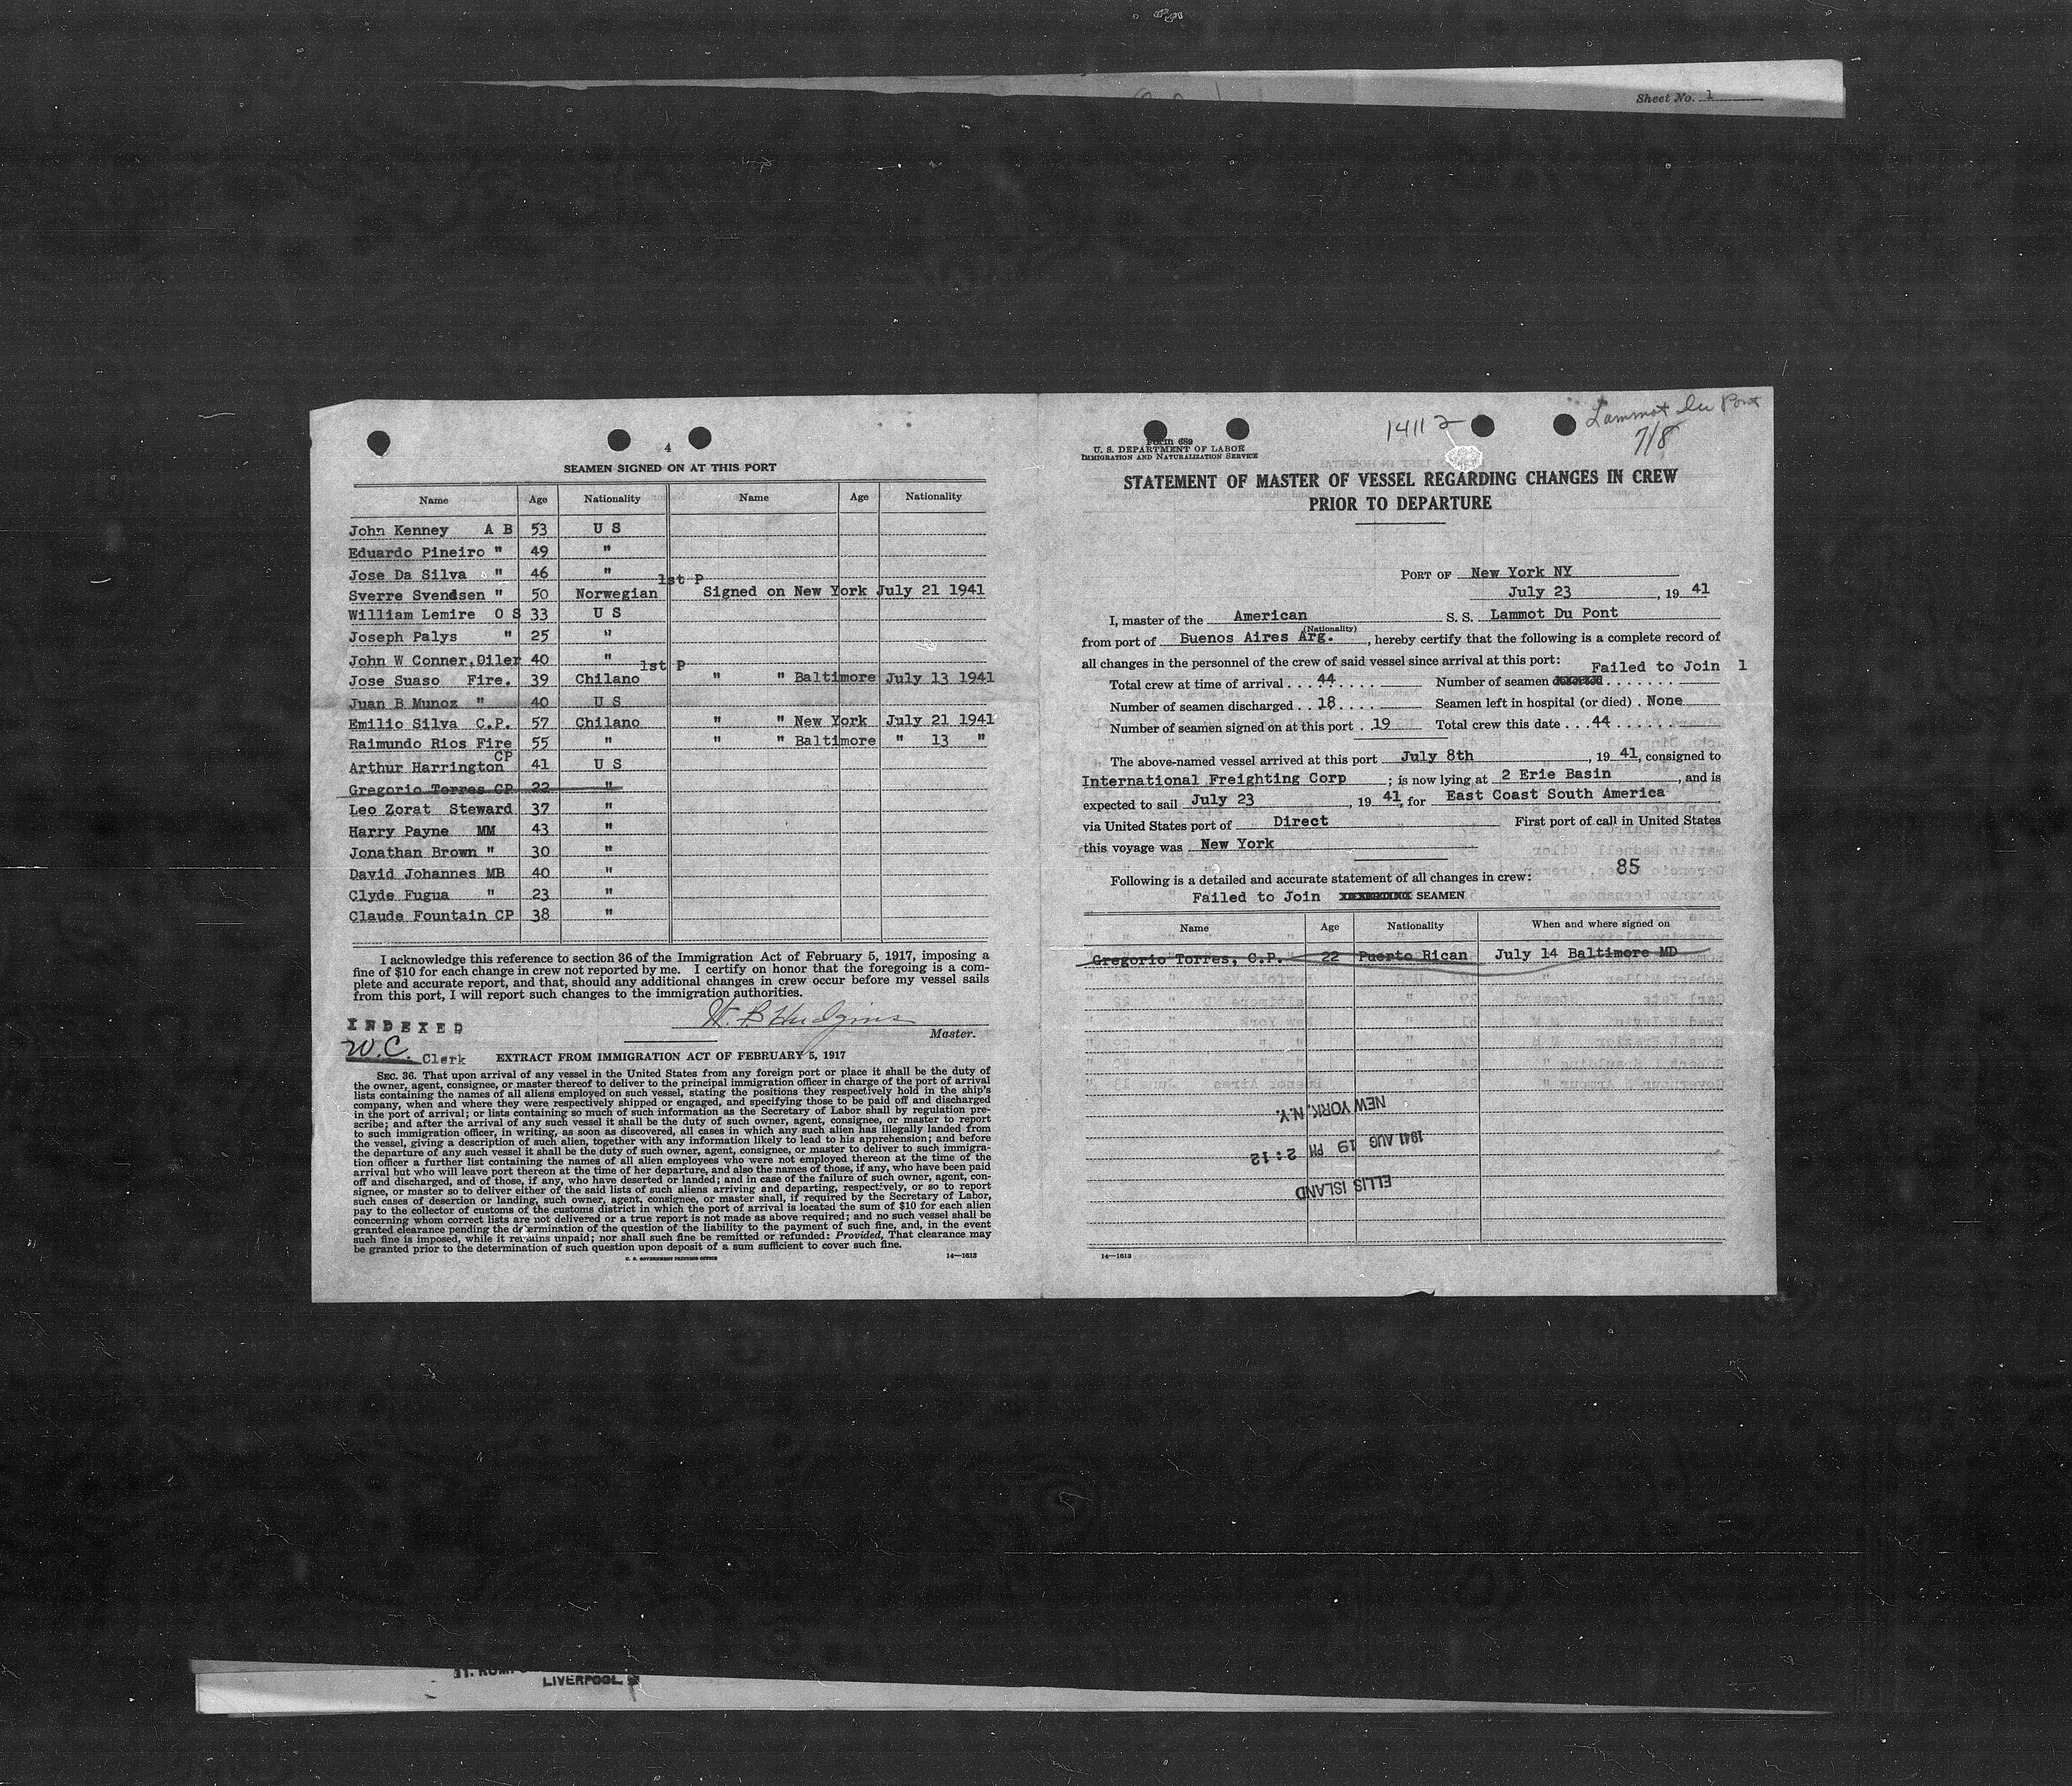 Sheet No. 1
4
SEAMEN SIGNED ON AT THIS PORT
Name Age Nationality Name Age Nationality
John Kenney A B 53 U S
Eduardo Pineiro " 49 "
Jose Da Silva " 46 "
1st P
Sverre Svendsen " 50 Norwegian Signed on New York July 21 1941
William Lemire O S 33 U S
Joseph Palys " 25 "
John W Conner, Oiler 40 "
1st P
Jose Suaso Fire. 39 Chilano " " Baltimore July 13 1941
Juan B Munoz " 40 U S
Emilio Silva C.P. 57 Chilano " " New York July 21 1941
Raimundo Rios Fire 55 " " " Baltimore " 13 "
CP
Arthur Harrington 41 U S
Gregorio Torres CP 22 "
Leo Zorat Steward 37 "
Harry Payne MM 43 "
Jonathan Brown " 30 "
David Johannes MB 40 "
Clyde Fugua " 23 "
Claude Fountain CP 38 "
I acknowledge this reference to section 36 of the Immigration Act of February 5, 1917, imposing a
fine of $10 for each change in crew not reported by me. I certify on honor that the foregoing is a com-
plete and accurate report, and that, should any additional changes in crew occur before my vessel sails
from this port, I will report such changes to the immigration authorities.
W. B Hudgins
Master.
INDEXED
W.C. Clerk
EXTRACT FROM IMMIGRATION ACT OF FEBRUARY 5, 1917
SEC. 36. That upon arrival of any vessel in the United States from any foreign port or place it shall be the duty of
the owner, agent, consignee, or master thereof to deliver to the principal immigration officer in charge of the port of arrival
lists containing the names of all aliens employed on such vessel, stating the positions they respectively hold in the ship's
company, when and where they were respectively shipped or engaged, and specifying those to be paid off and discharged
in the port of arrival; or lists containing so much of such information as the Secretary of Labor shall by regulation pre-
scribe; and after the arrival of any such vessel it shall be the duty of such owner, agent, consignee, or master to report
to such immigration officer, in writing, as soon as discovered, all cases in which any such alien has illegally landed from
the vessel, giving a description of such alien, together with any information likely to lead to his apprehension; and before
the departure of any such vessel it shall be the duty of such owner, agent, consignee, or master to deliver to such immigra-
tion officer a further list containing the names of all alien employees who were not employed thereon at the time of the
arrival but who will leave port thereon at the time of her departure, and also the names of those, if any, who have been paid
off and discharged, and of those, if any, who have deserted or landed; and in case of the failure of such owner, agent, con-
signee, or master so to deliver either of the said lists of such aliens arriving and departing, respectively, or so to report
such cases of desertion or landing, such owner, agent, consignee, or master shall, if required by the Secretary of Labor,
pay to the collector of customs of the customs district in which the port of arrival is located the sum of $10 for each alien
concerning whom correct lists are not delivered or a true report is not made as above required; and no such vessel shall be
granted clearance pending the determination of the question of the liability to the payment of such fine, and, in the event
such fine is imposed, while it remains unpaid; nor shall such fine be remitted or refunded: Provided, That clearance may
be granted prior to the determination of such question upon deposit of a sum sufficient to cover such fine.
U. S. GOVERNMENT PRINTING OFFICE 14—1613
14112
Lammot du Pont
7/8
Form 689
U. S. DEPARTMENT OF LABOR
IMMIGRATION AND NATURALIZATION SERVICE
STATEMENT OF MASTER OF VESSEL REGARDING CHANGES IN CREW
PRIOR TO DEPARTURE
PORT OF New York NY
July 23, 19 41
I, master of the American S. S. Lammot Du Pont
(Nationality)
from port of Buenos Aires Arg., hereby certify that the following is a complete record of
all changes in the personnel of the crew of said vessel since arrival at this port:
Failed to Join 1
Total crew at time of arrival . . . 44 . . . . Number of seamen deserted . . . . . . .
Number of seamen discharged . . 18 . . . . Seamen left in hospital (or died) . None
Number of seamen signed on at this port . . 19 Total crew this date . . . 44 . . . . . .
The above-named vessel arrived at this port July 8th, 19 41, consigned to
International Freighting Corp ; is now lying at 2 Erie Basin, and is
expected to sail July 23, 19 41, for East Coast South America
via United States port of Direct First port of call in United States
this voyage was New York
85
Following is a detailed and accurate statement of all changes in crew:
Failed to Join SEAMEN
Name Age Nationality When and where signed on
Gregorio Torres, C.P. 22 Puerto Rican July 14 Baltimore MD
NEW YORK, N.Y.
1941 AUG 19 PM 2:12
ELLIS ISLAND
14—1613
LIVERPOOL